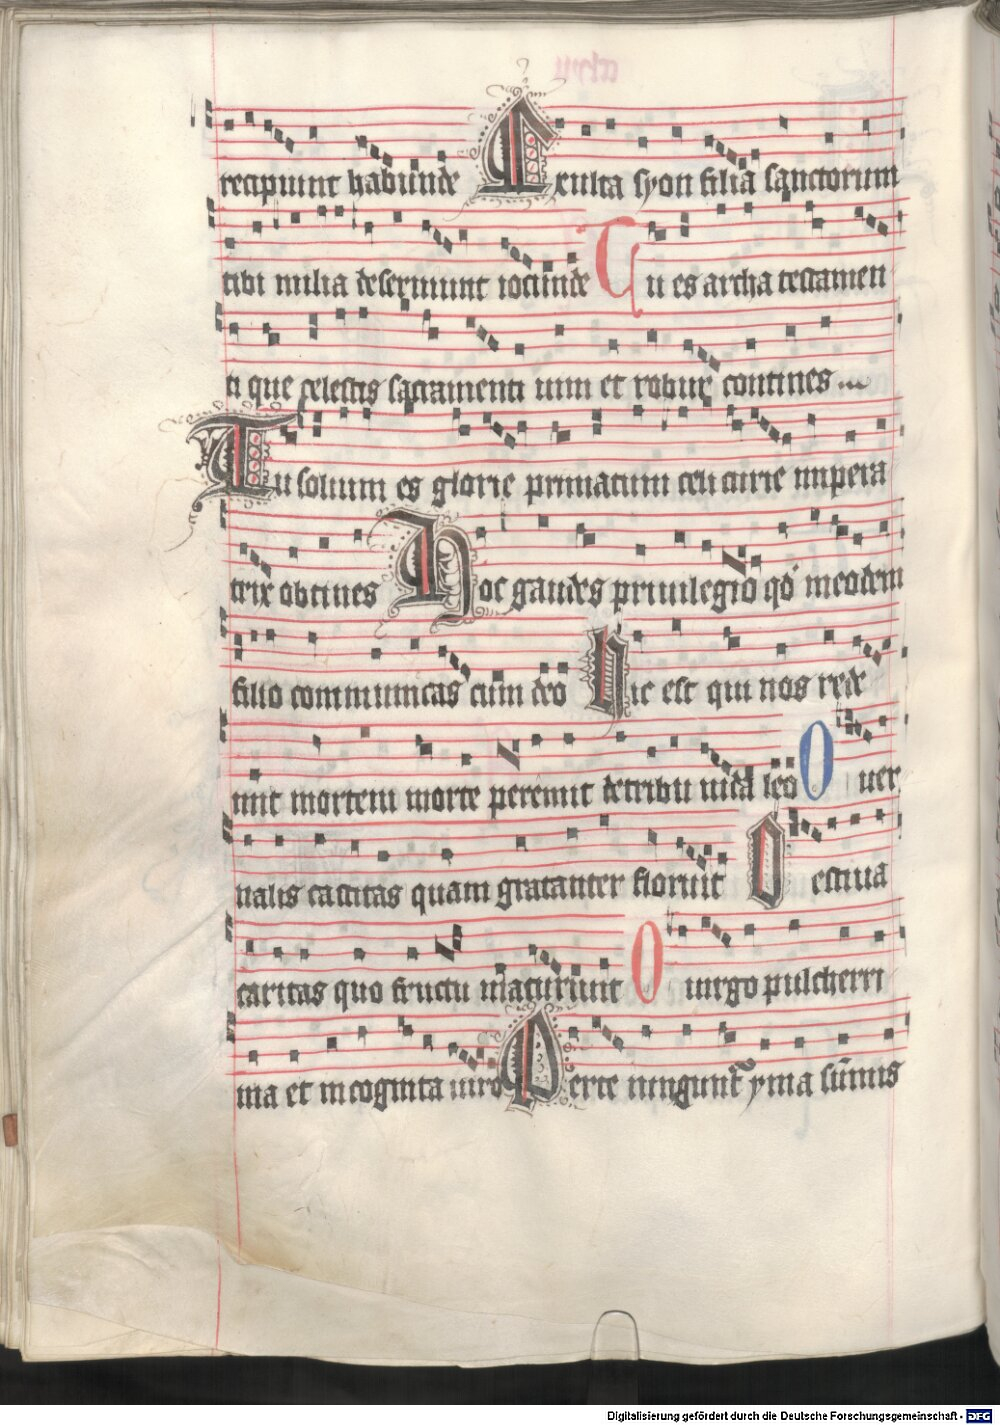 recipiunt habunde Exulta syon filia sanctorum
tibi milia deseruiunt iocunde Tu es archa testamen
ti que celestis sacramenti uim et robur contines
Tu solium es glorie primatum celi curie impera
trix obtines Hoc gaudes priuilegio qđ meodem
filio communicas cum deo Hic est qui nos rede
mit mortem morte peremit detribu iuda leo O uer
nalis castitas quam gratanter floruit O estiua
caritas quo fructu maturiuit O uirgo pulcherri
ma et incognita uiro Perte iungunt᷑ yma su̅mis
Digitalisierung gefördert durch die Deutsche Forschungsgemeinschaft - DFG